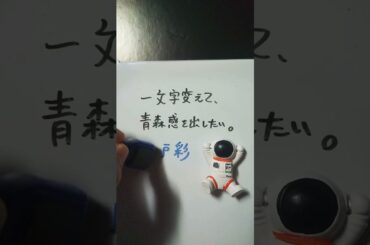 一文字変えて、
青森感を出したい。
戸彩